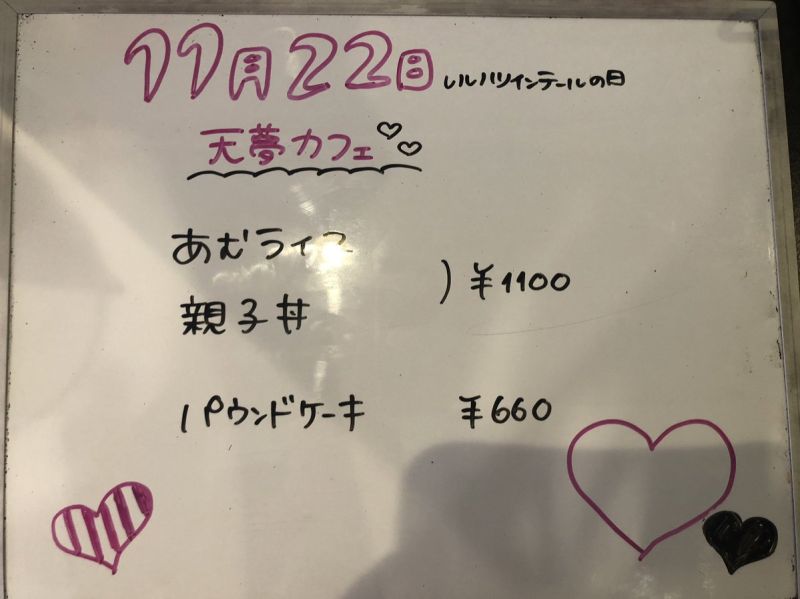 11月22日 ルルハツインテールの日
天夢カフェ
あむライス
親子丼
) ¥1100
パウンドケーキ ¥660